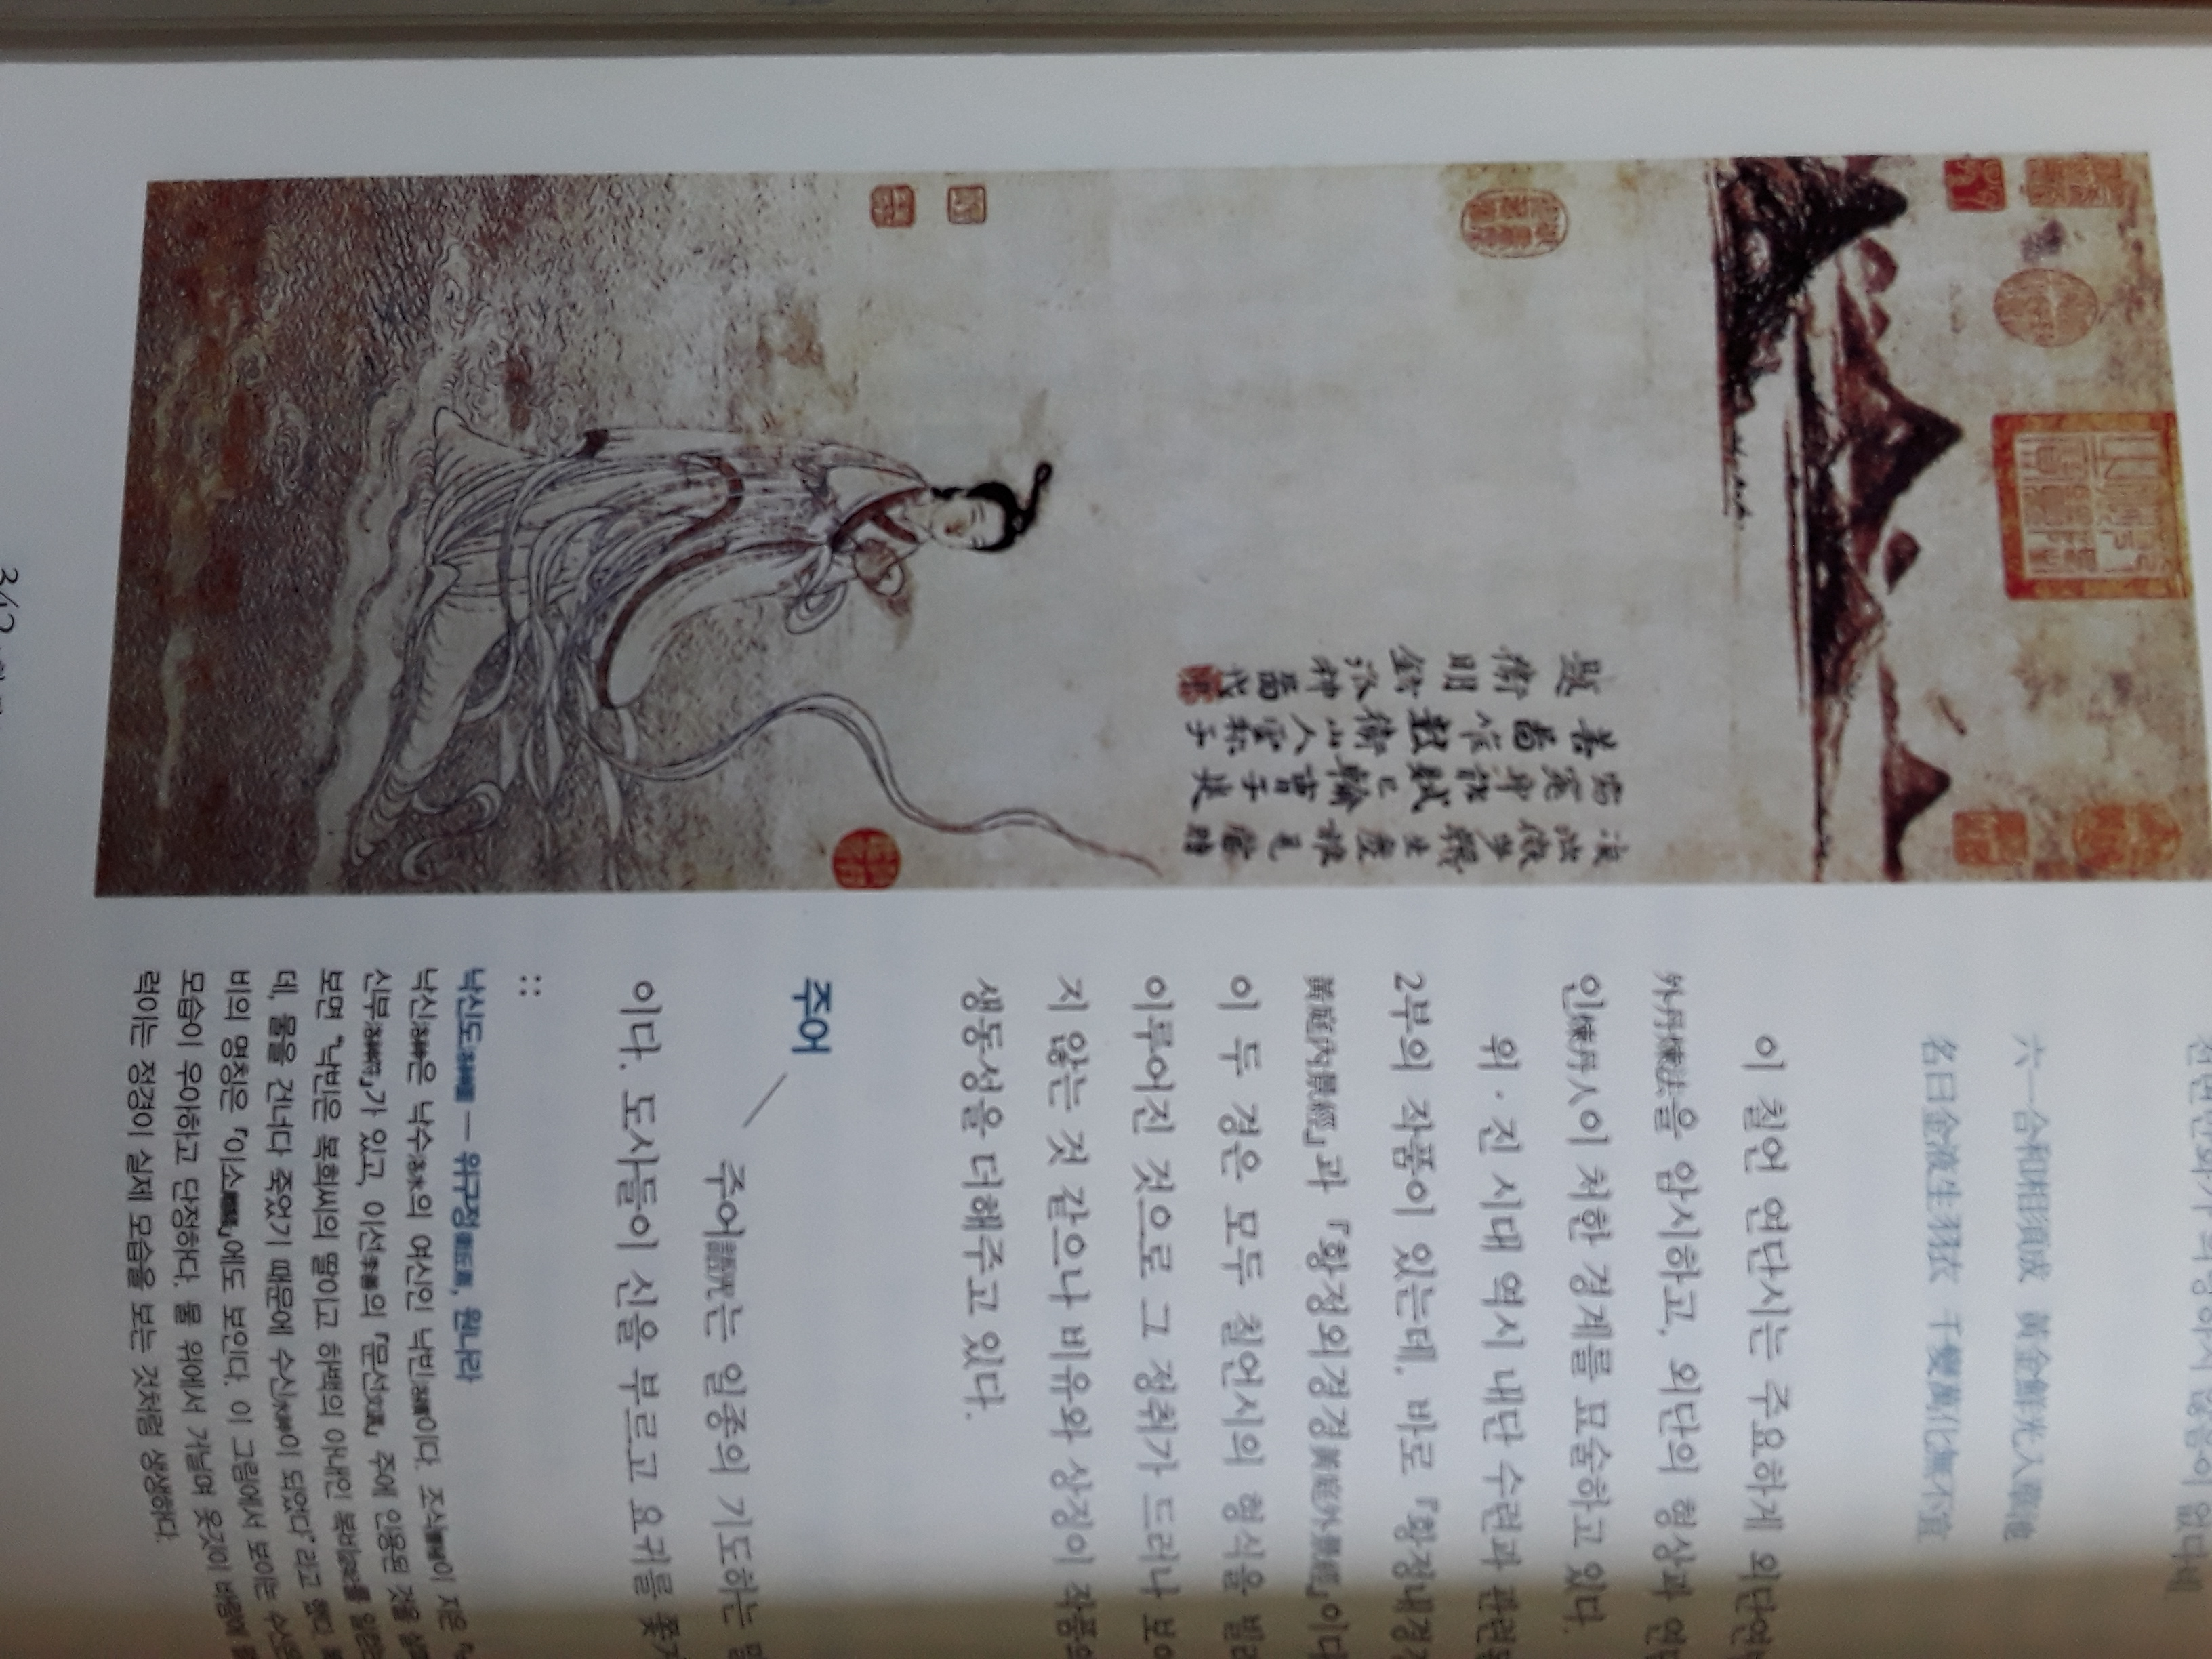 六一合和相須成 黃金鮮光入華池
名曰金液生羽衣 千變萬化無不宜
이 칠언 연단시는 주요하게 외단연
外丹煉法을 암시하고, 외단의 형상과 연
인煉丹人이 처한 경계를 묘술하고 있다.
위·진 시대 역시 내단 수련과 관련
2부의 작품이 있는데, 바로 『황정내경
黃庭內景經』과 『황정외경경黃庭外景經』이다
이 두 경은 모두 칠언시의 형식을
이루어진 것으로 그 정취가 드러나
지 않는 것 같으나 비유와 상징이 작품의
생동성을 더해주고 있다.
주어
주어呪語는 일종의 기도하는
이다. 도사들이 신을 부르고 요귀를 쫓
::
낙신도洛神圖 — 위구정衛九鼎, 원나라
낙신洛神은 낙수洛水의 여신인 낙빈洛嬪이다. 조식曹植이 지은 『낙
신부洛神賦』가 있고, 이선李善의 『문선文選』 주에 인용된 것을
보면 "낙빈은 복희씨의 딸이고 하백의 아내인 복비宓妃를
데, 물을 건너다 죽었기 때문에 수신水神이 되었다"라고 했다.
비의 명칭은 『이소離騷』에도 보인다. 이 그림에서 보이는 수신의
모습이 우아하고 단정하다. 물 위에서 거닐며 옷깃이 바람에
럭이는 정경이 실제 모습을 보는 것처럼 생생하다.
凌波微步襪生塵誰見當時
窈窕身能賦已輸曹子建
善圖唯數衛山人雲林子
題衛明鉉洛神圖